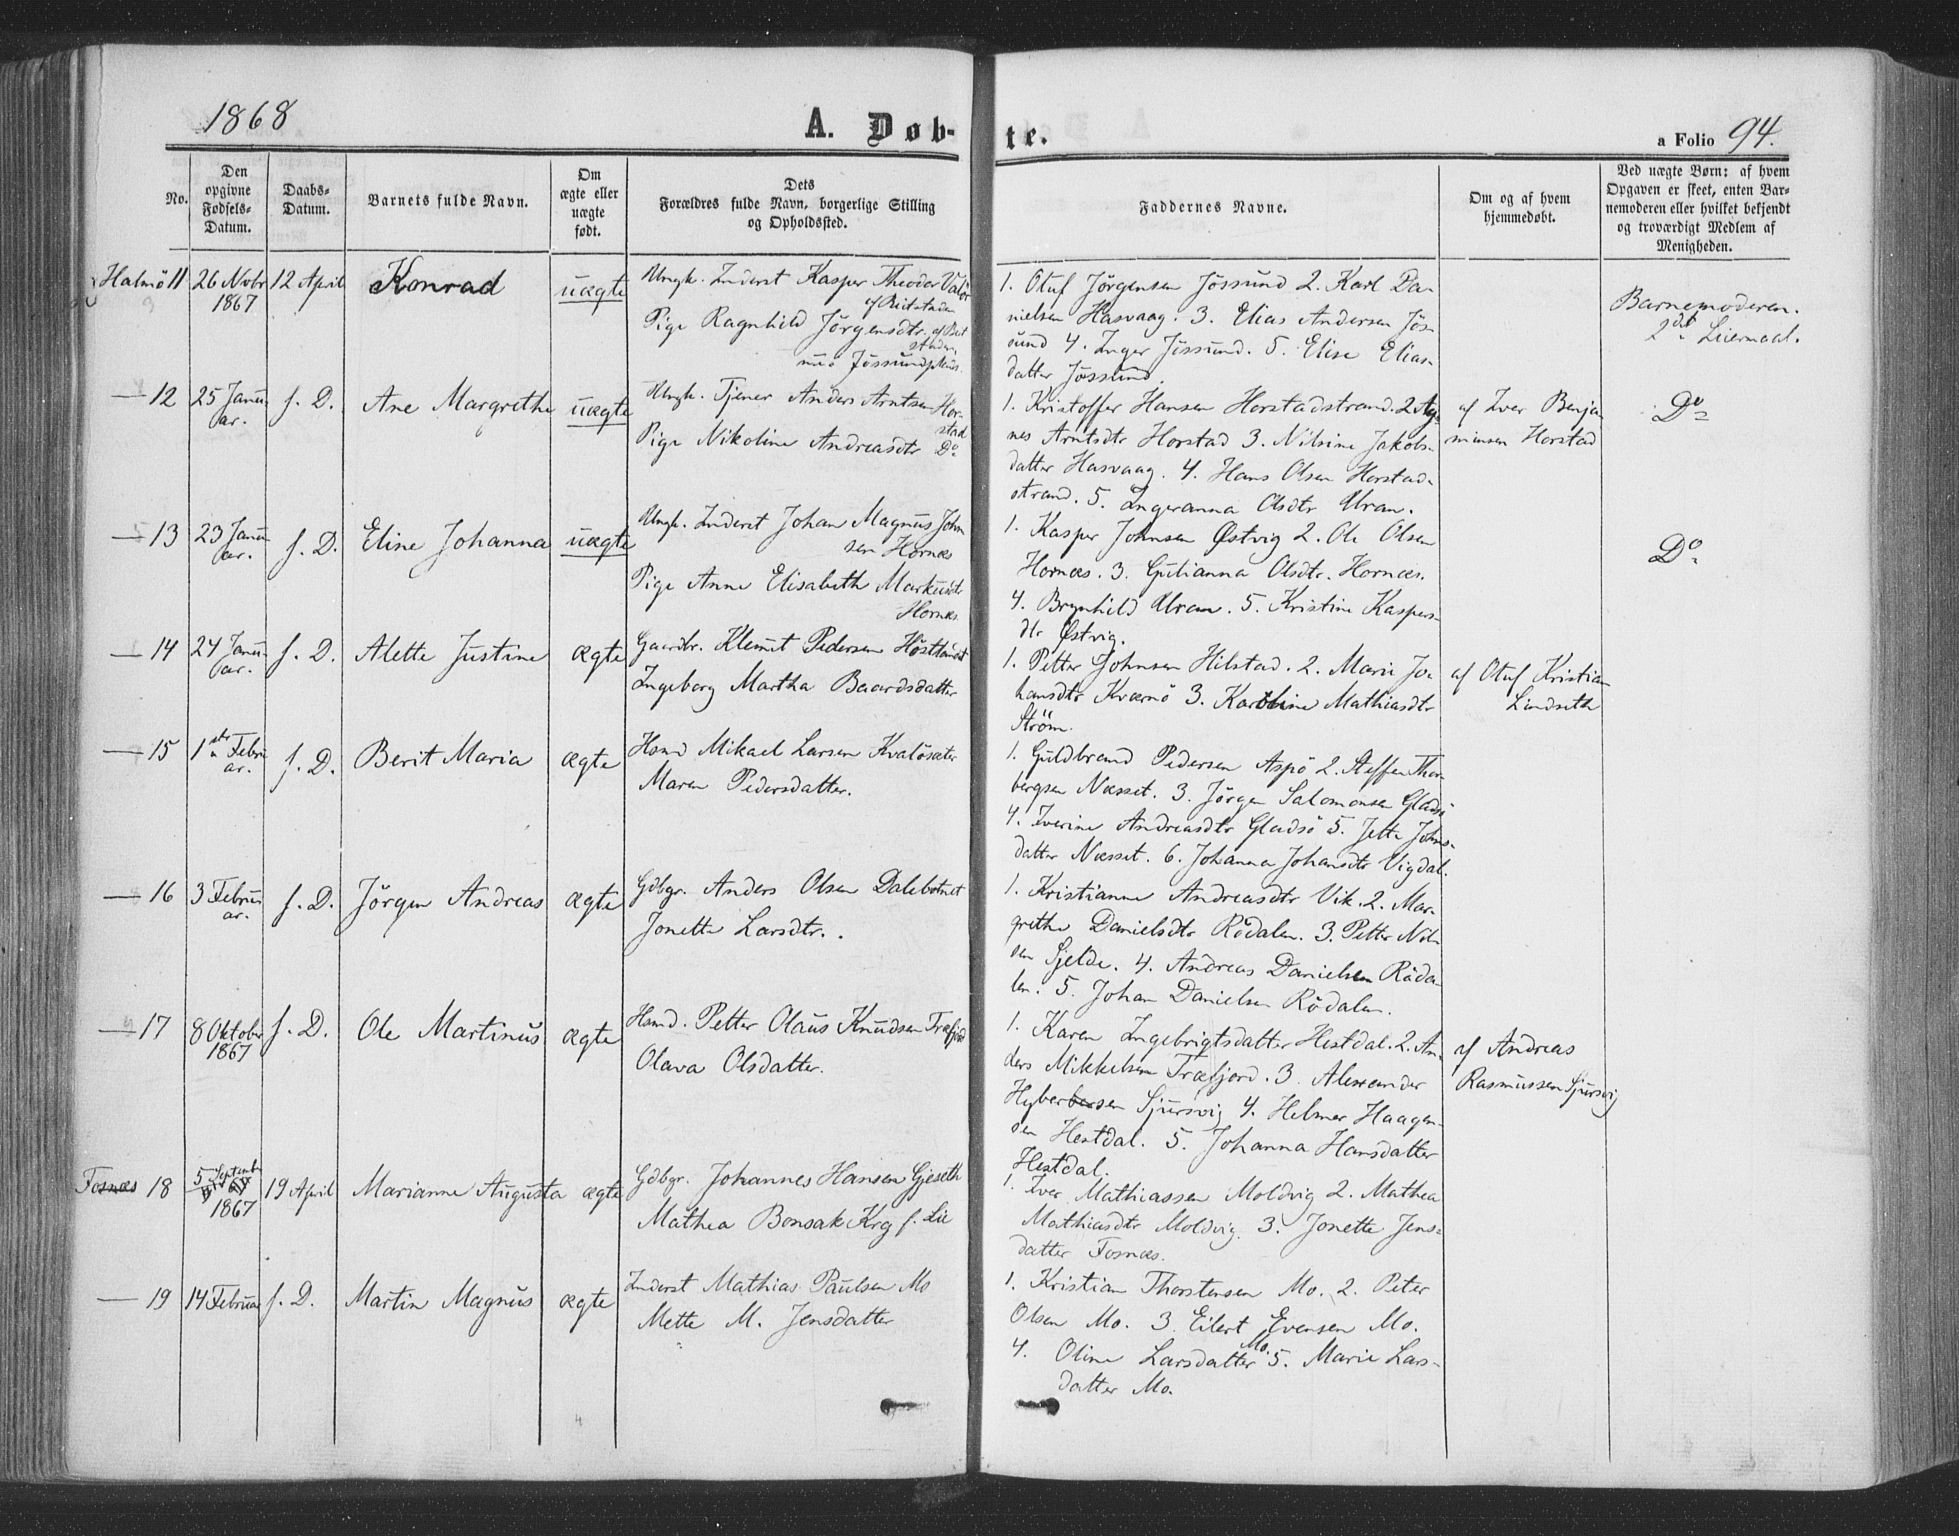 1868
A. Døb-
te.
a Folio 94.
No.
Den
opgivne
Fødsels-
Datum.
Daabs-
Datum.
Barnets fulde Navn.
Om
ægte eller
uægte
født.
Dets
Forældres fulde Navn, borgerlige Stilling
og Opholdssted.
Faddernes Navne.
Om og af hvem
hjemmedøbt.
Ved uægte Børn: af hvem
Opgaven er skeet, enten Bar-
nemoderen eller hvilket bekjendt
og troværdigt Medlem af
Menigheden.
Halmö 11
26 Novbr
1867
12 April
Konrad
uægte
Ungk. Inderst Kasper Theodor Valör
af Beitstaden
Pige Ragnhild Jörgensdtr. af Beit
staden,
Jössund
1. Oluf Jörgensen Jössund 2. Karl Da-
nielsen Hasvaag. 3. Elias Andersen Jös-
sund 4. Inger Jössund. 5. Elise Elias-
datter Jössund.
Barnemoderen.
2det Leiermaal.
— 12
25 Janu-
ar.
s. D.
Ane Margrethe
uægte
Ungk. Tjener Anders Arntsen Hor-
stad
Pige Nikoline Andreasdtr Do
1. Kristoffer Hansen Horstadstrand. 2. Ag-
nes Arntsdtr Horstad 3. Nilsine Jakobs-
datter Hasvaag. 4. Hans Olsen Horstad-
strand. 5. Ingeranna Olsdtr Uran.
af Iver Benja-
minsen Horstad
Do
— 13
23 Janu-
ar.
s. D.
Eline Johanna
uægte
Ungk. Inderst Johan Magnus John
sen Hornæs
Pige Anne Elisabeth Markusdtr
Hornæs
1. Kasper Johnsen Østvig 2. Ole Olsen
Hornæs. 3. Gulianna Olsdtr. Hornæs.
4. Brynhild Uran. 5. Kristine Kaspers-
dtr Østvig.
Do
— 14
24 Janu-
ar.
s. D.
Alette Justine
ægte
Gaardbr. Klemit Pedersen Høstlandet
Ingeborg Martha Baardsdatter
1. Petter Johnsen Hilstad. 2. Marie Jo-
hansdtr Kværnö 3. Karoline Mathiasdtr
Ström.
af Oluf Kristian
Lindseth
— 15
1ste Febru
ar.
s. D.
Berit Maria
ægte
Hsmd Mikael Larsen Kvalösæter
Maren Pedersdatter.
1. Guldbrand Pedersen Aspö 2. Steffen Thor-
bergsen Næsset. 3. Jörgen Salomonsen Gladsö
4. Iverine Andreasdtr Gladsö 5. Jette Johns-
datter Næsset. 6. Johanna Johansdtr Vigdal.
— 16
3 Febru
ar.
s. D.
Jørgen Andreas
ægte
Gdbgr. Anders Olsen Dalebotnet
Jonette Larsdtr.
1. Kristianne Andreasdtr Vik. 2. Mar-
grethe Danielsdtr Rödalen. 3. Petter Nil-
sen Sjelde. 4. Andreas Danielsen Röda-
len. 5. Johan Danielsen Rödalen.
— 17
8 Oktober
1867
s. D.
Ole Martinus
ægte
Hsmd. Petter Olaus Knudsen Træfjord
Olava Olsdatter.
1. Karen Ingebrigtsdatter Hestdal. 2. An-
ders Mikkelsen Træfjord. 3. Alexander
Hyberbersen Sjursvig 4. Helmer Haagen-
sen Hestdal. 5. Johanna Hansdatter
Hestdal.
af Andreas
Rasmussen Sjursvig
Fosnæs 18
5 Septembr
1867
19 April
Marianne Augusta
ægte
Gdbgr. Johannes Hansen Gjeseth
Mathea Bonsak Krg f. Lie
1. Iver Mathiassen Moldvig 2. Mathea
Mathiasdtr Moldvig. 3. Jonette Jens-
datter Fosnæs.
— 19
14 Februar
s. D.
Martin Magnus
ægte
Inderst Mathias Paulsen Mo
Mette M. Jensdatter
1. Kristian Thorstensen Mo. 2. Peter
Olsen Mo. 3. Eilert Evensen Mo.
4. Oline Larsdatter Mo. 5. Marie Lars-
datter Mo.